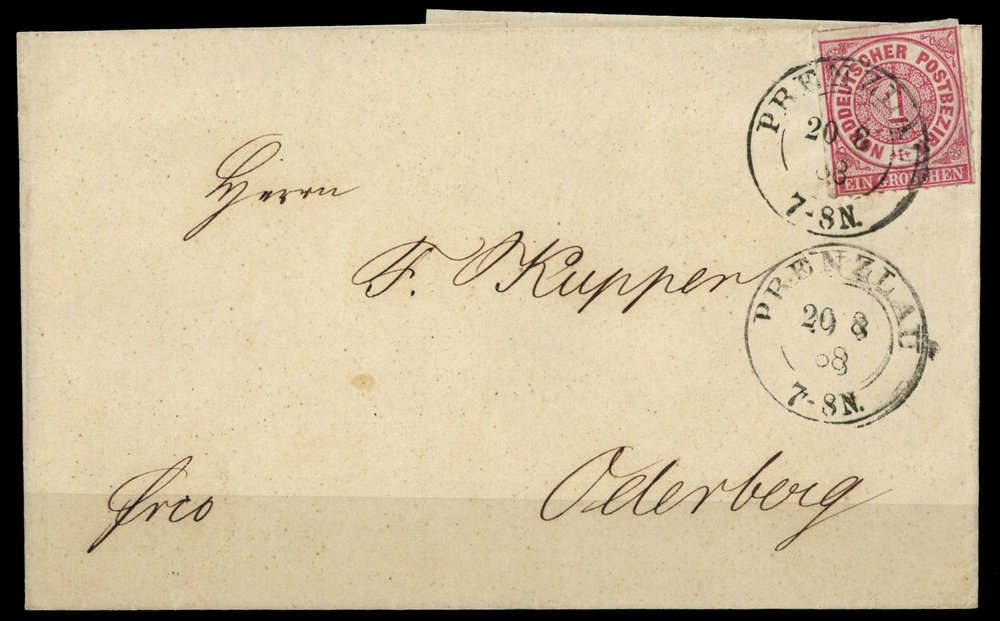 NORDDEUTSCHER POSTBEZIRK
1
EIN GROSCHEN
PRENZLAU
20 8
68
7-8N.
Herrn
F. Kupper
PRENZLAU
20 8
68
7-8N.
Oderberg
frco